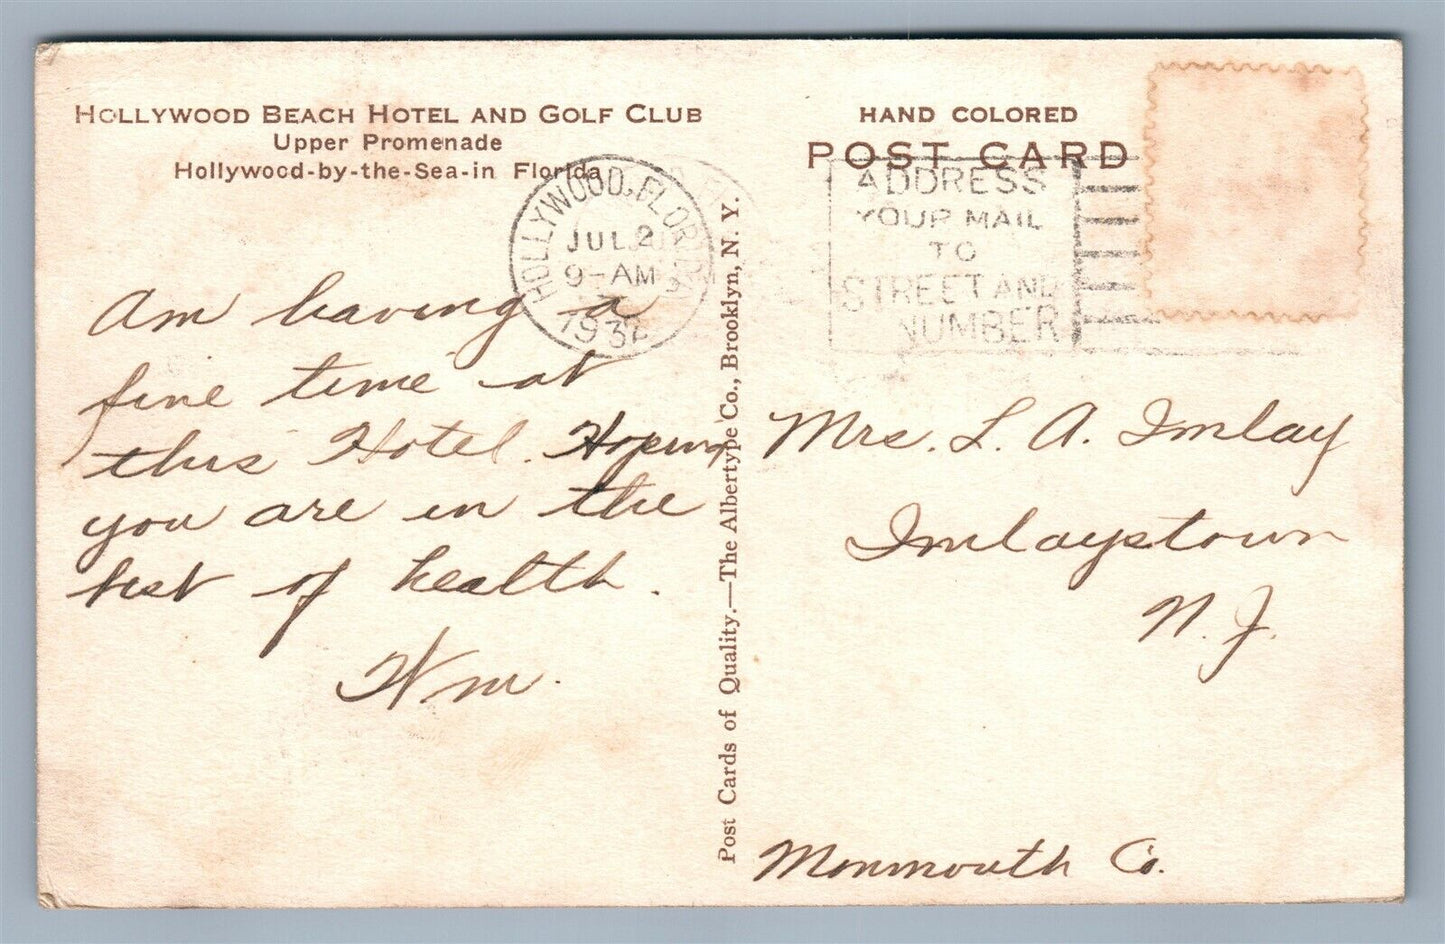 HOLLYWOOD BEACH HOTEL AND GOLF CLUB
Upper Promenade
Hollywood-by-the-Sea-in Florida
HAND COLORED
POST CARD
HOLLYWOOD, FLORIDA
JUL 2
9-AM
ADDRESS
YOUR MAIL
TO
STREET AND
NUMBER
Am having a
fine time at
this Hotel. Hoping
you are in the
best of health.
Wm.
Post Cards of Quality.—The Albertype Co., Brooklyn, N. Y.
Mrs. L. A. Imlay
Imlaystown
N. J.
Monmouth Co.